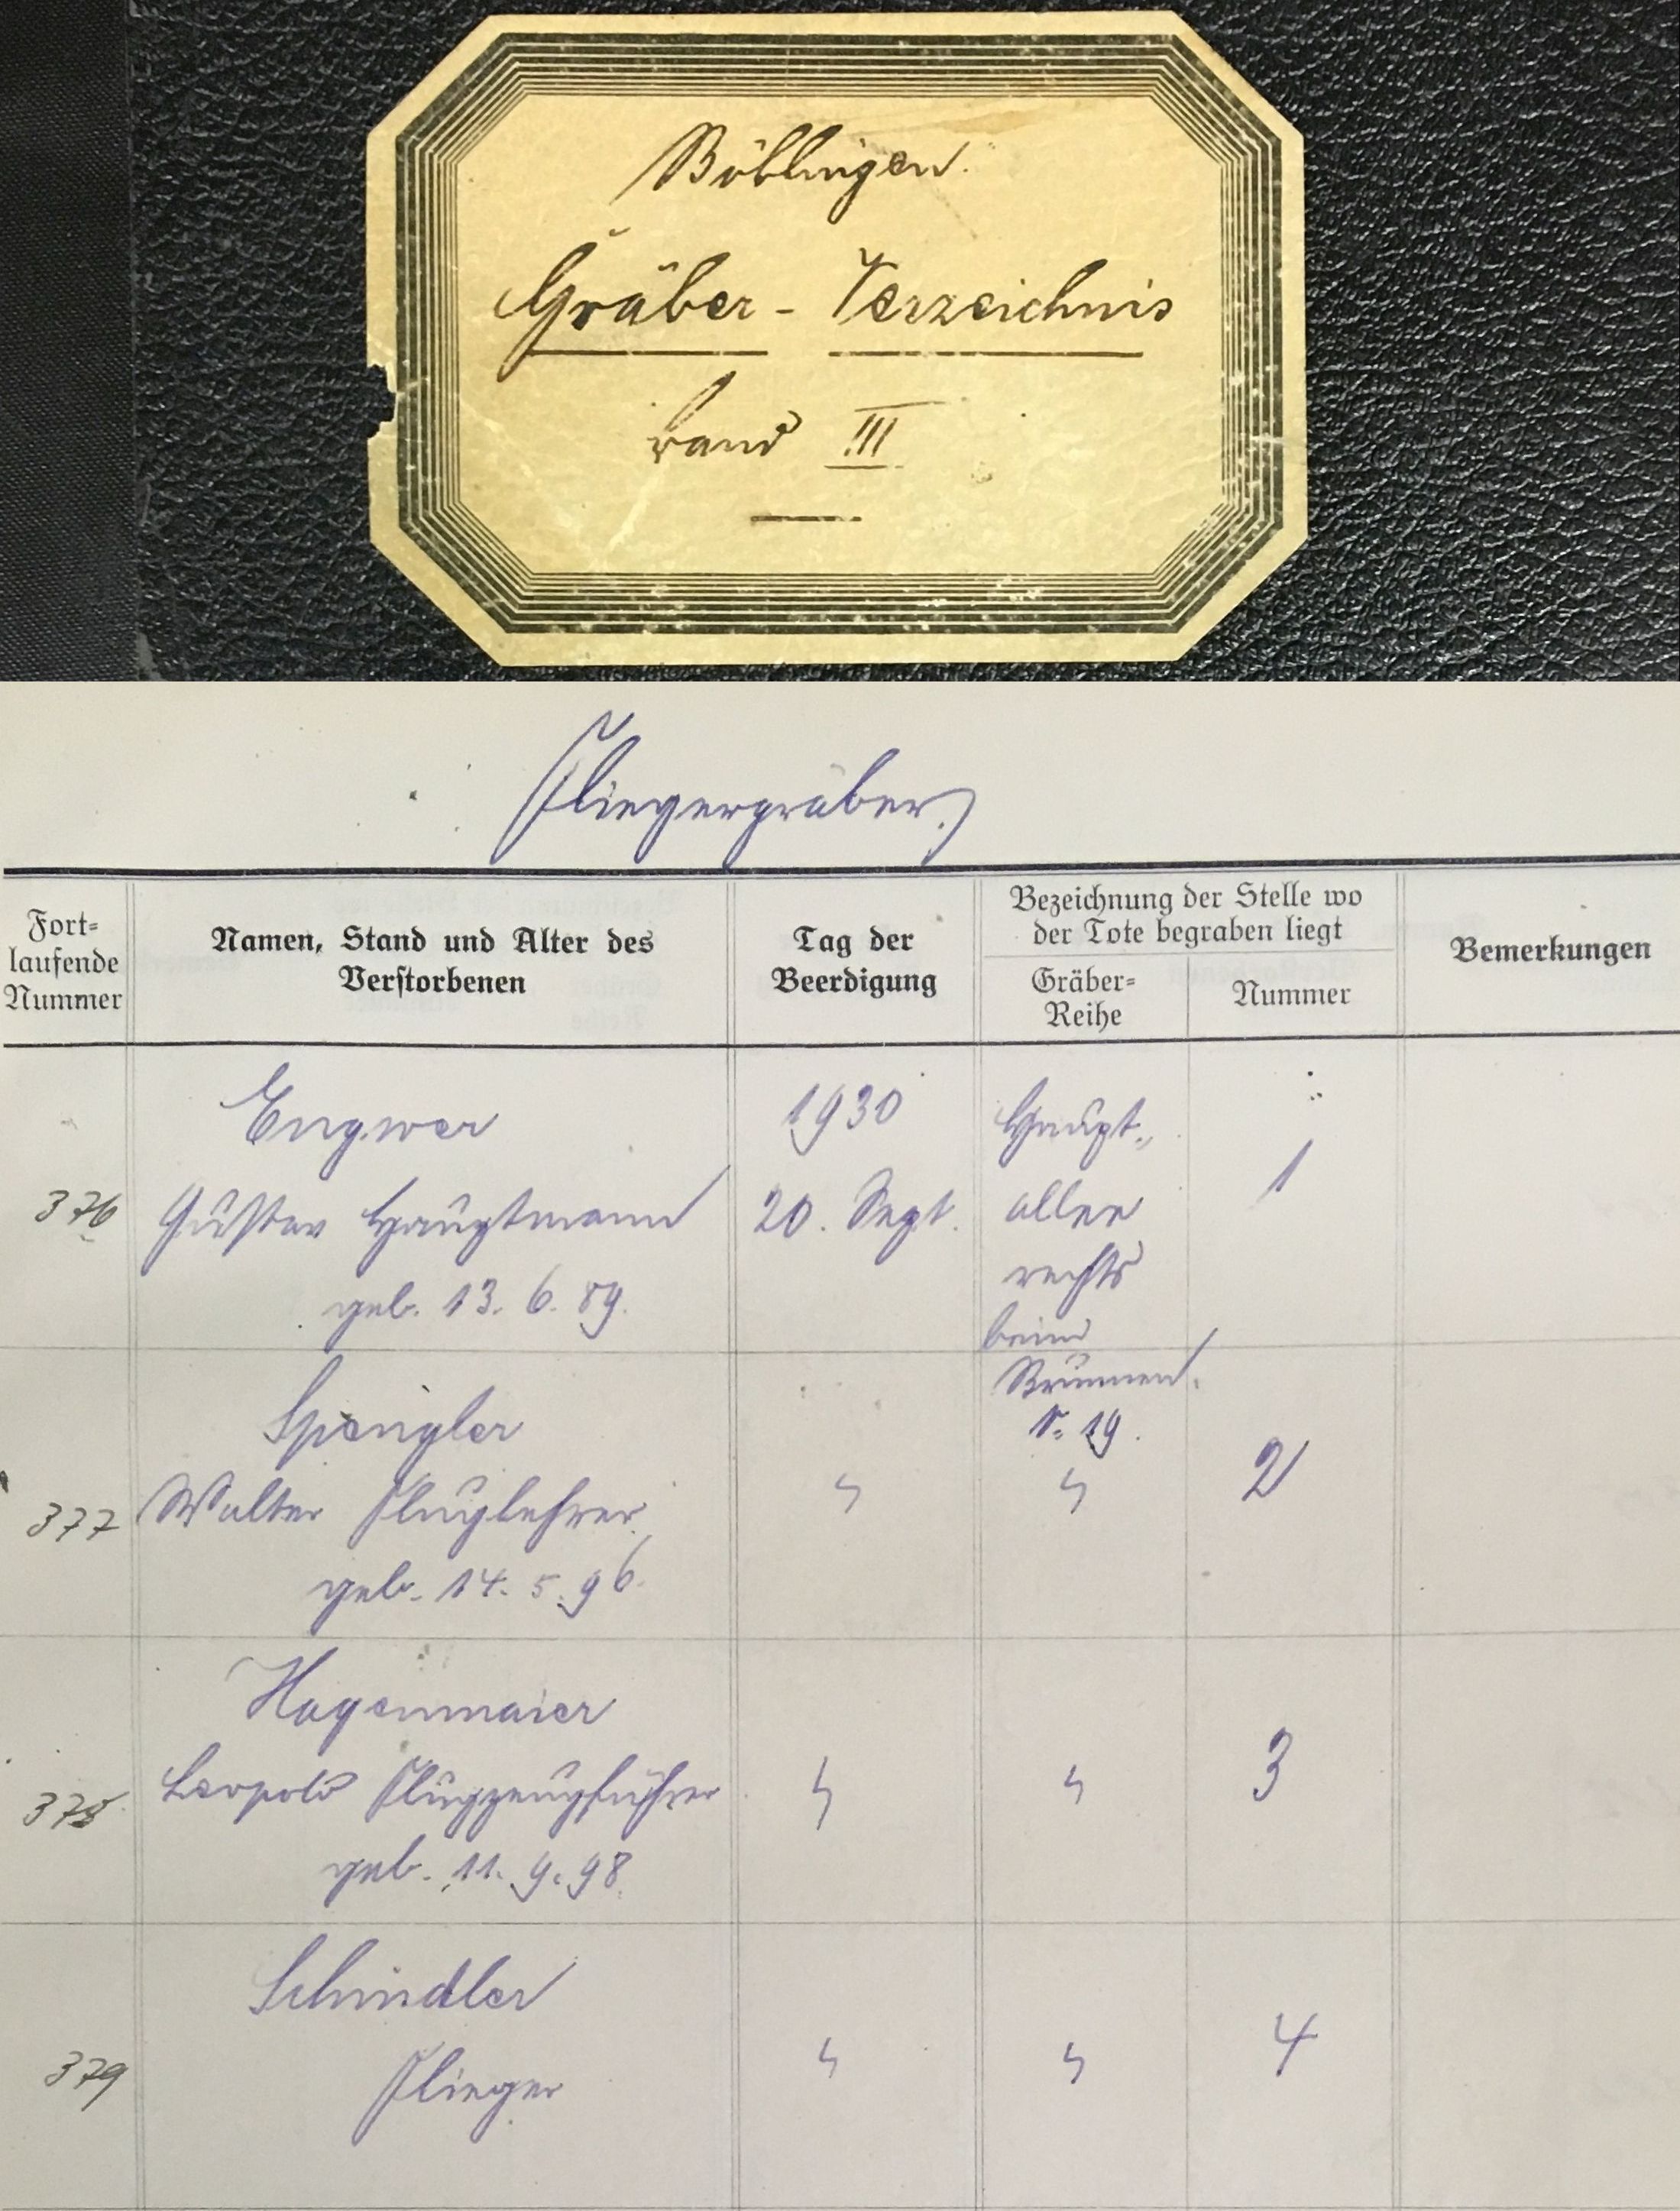 Böblingen.
Gräber - Verzeichnis
Band III
Fliegergräber.
Fort=
laufende
Nummer
Namen, Stand und Alter des
Verstorbenen
Tag der
Beerdigung
Bezeichnung der Stelle wo
der Tote begraben liegt
Gräber=
Reihe
Nummer
Bemerkungen
376
Engwer
Gustav Hauptmann
geb. 13. 6. 89.
1930
20. Sept.
Haupt„
allee
rechts
beim
Brunnen.
19.
1
377
Spengler
Walter Fluglehrer
geb. 14. 5. 96.
"
"
2
378
Hagenmaier
Leopold Flugzeugführer
geb. 11. 9. 98.
"
"
3
379
Schindler
Flieger
"
"
4